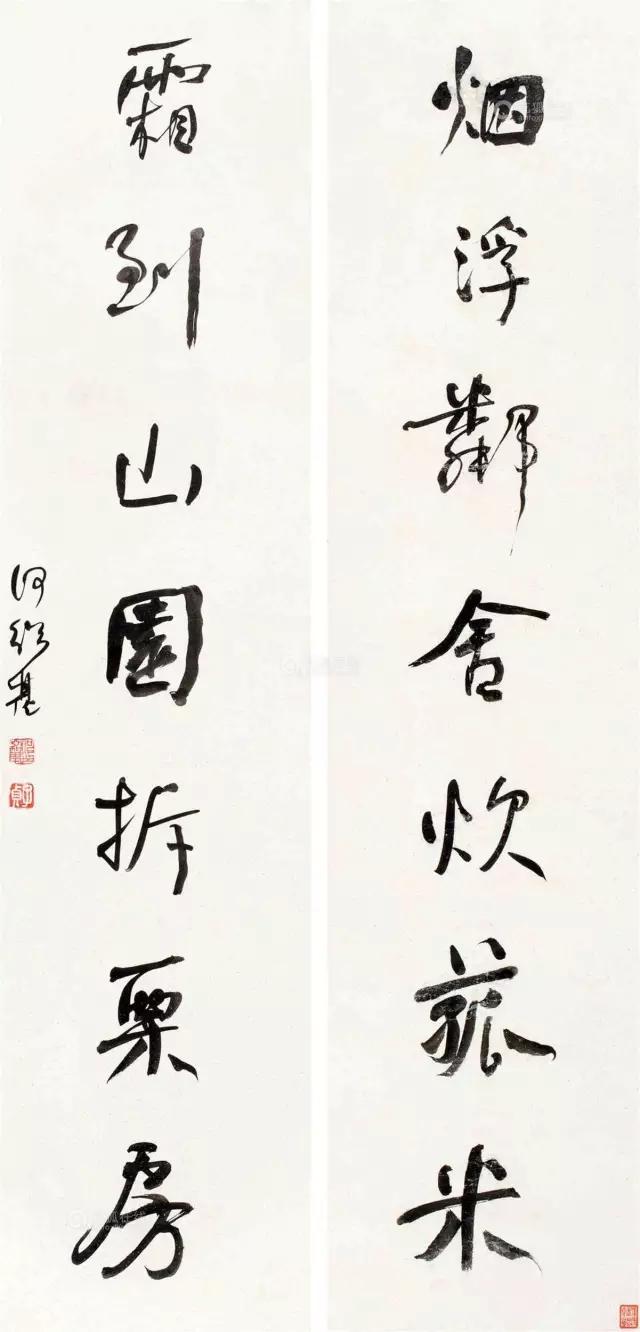 烟浮鄰舍炊菰米
霜到山園拆栗房
何紹基
子貞